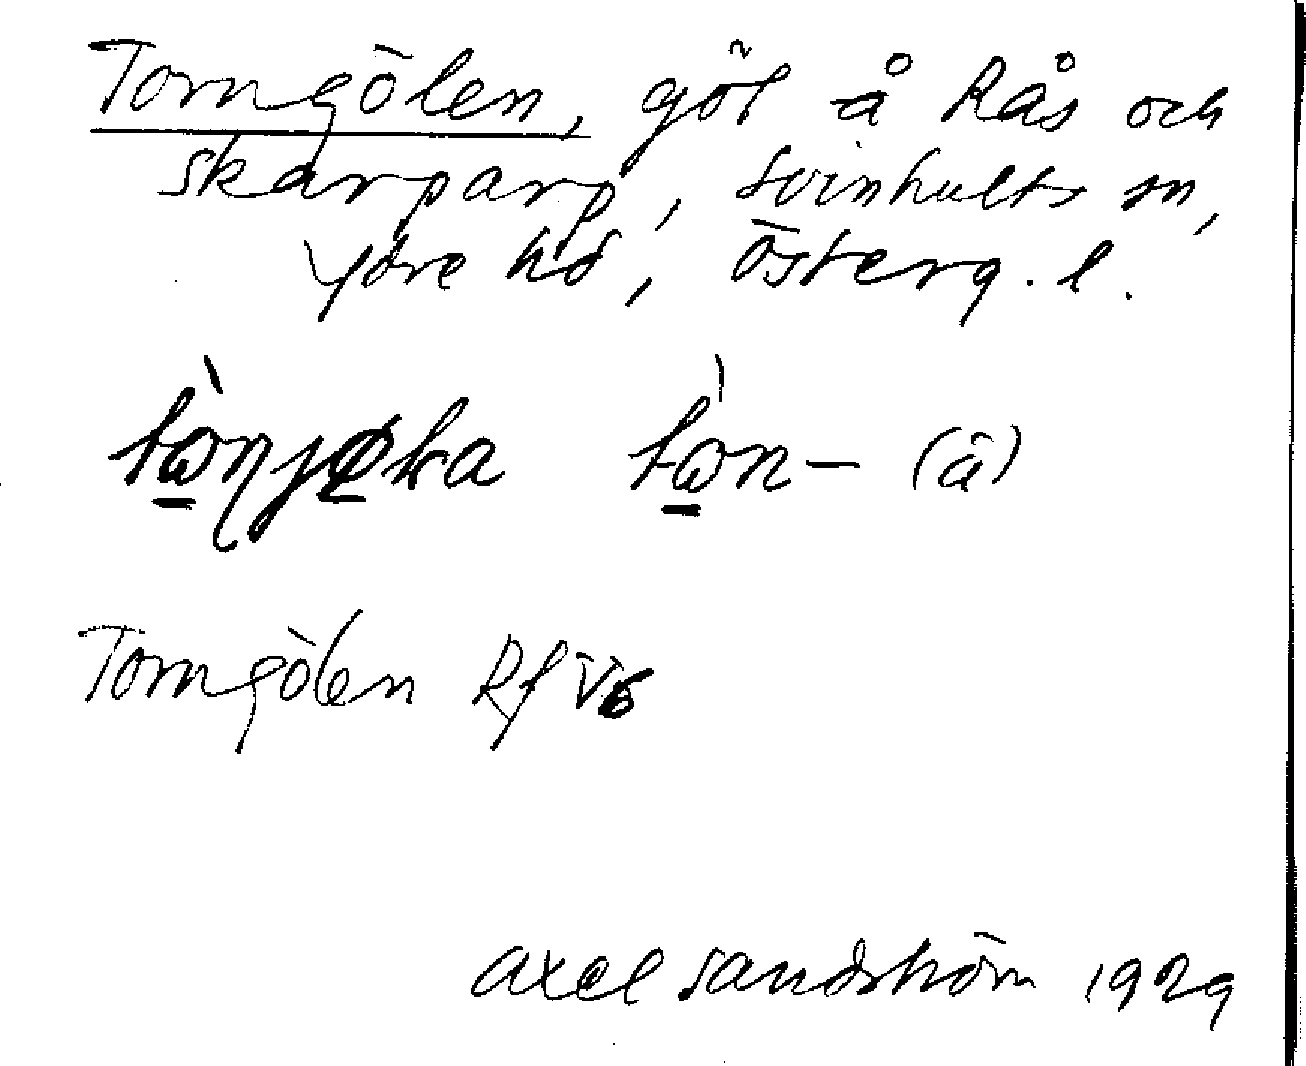 Torngölen, göl å Rås och
skarparp, Svinhults sn,
Ydre hd, Österg. l.
tòn- (å)
Torngölen Rf V6
Axel Sandström 1929